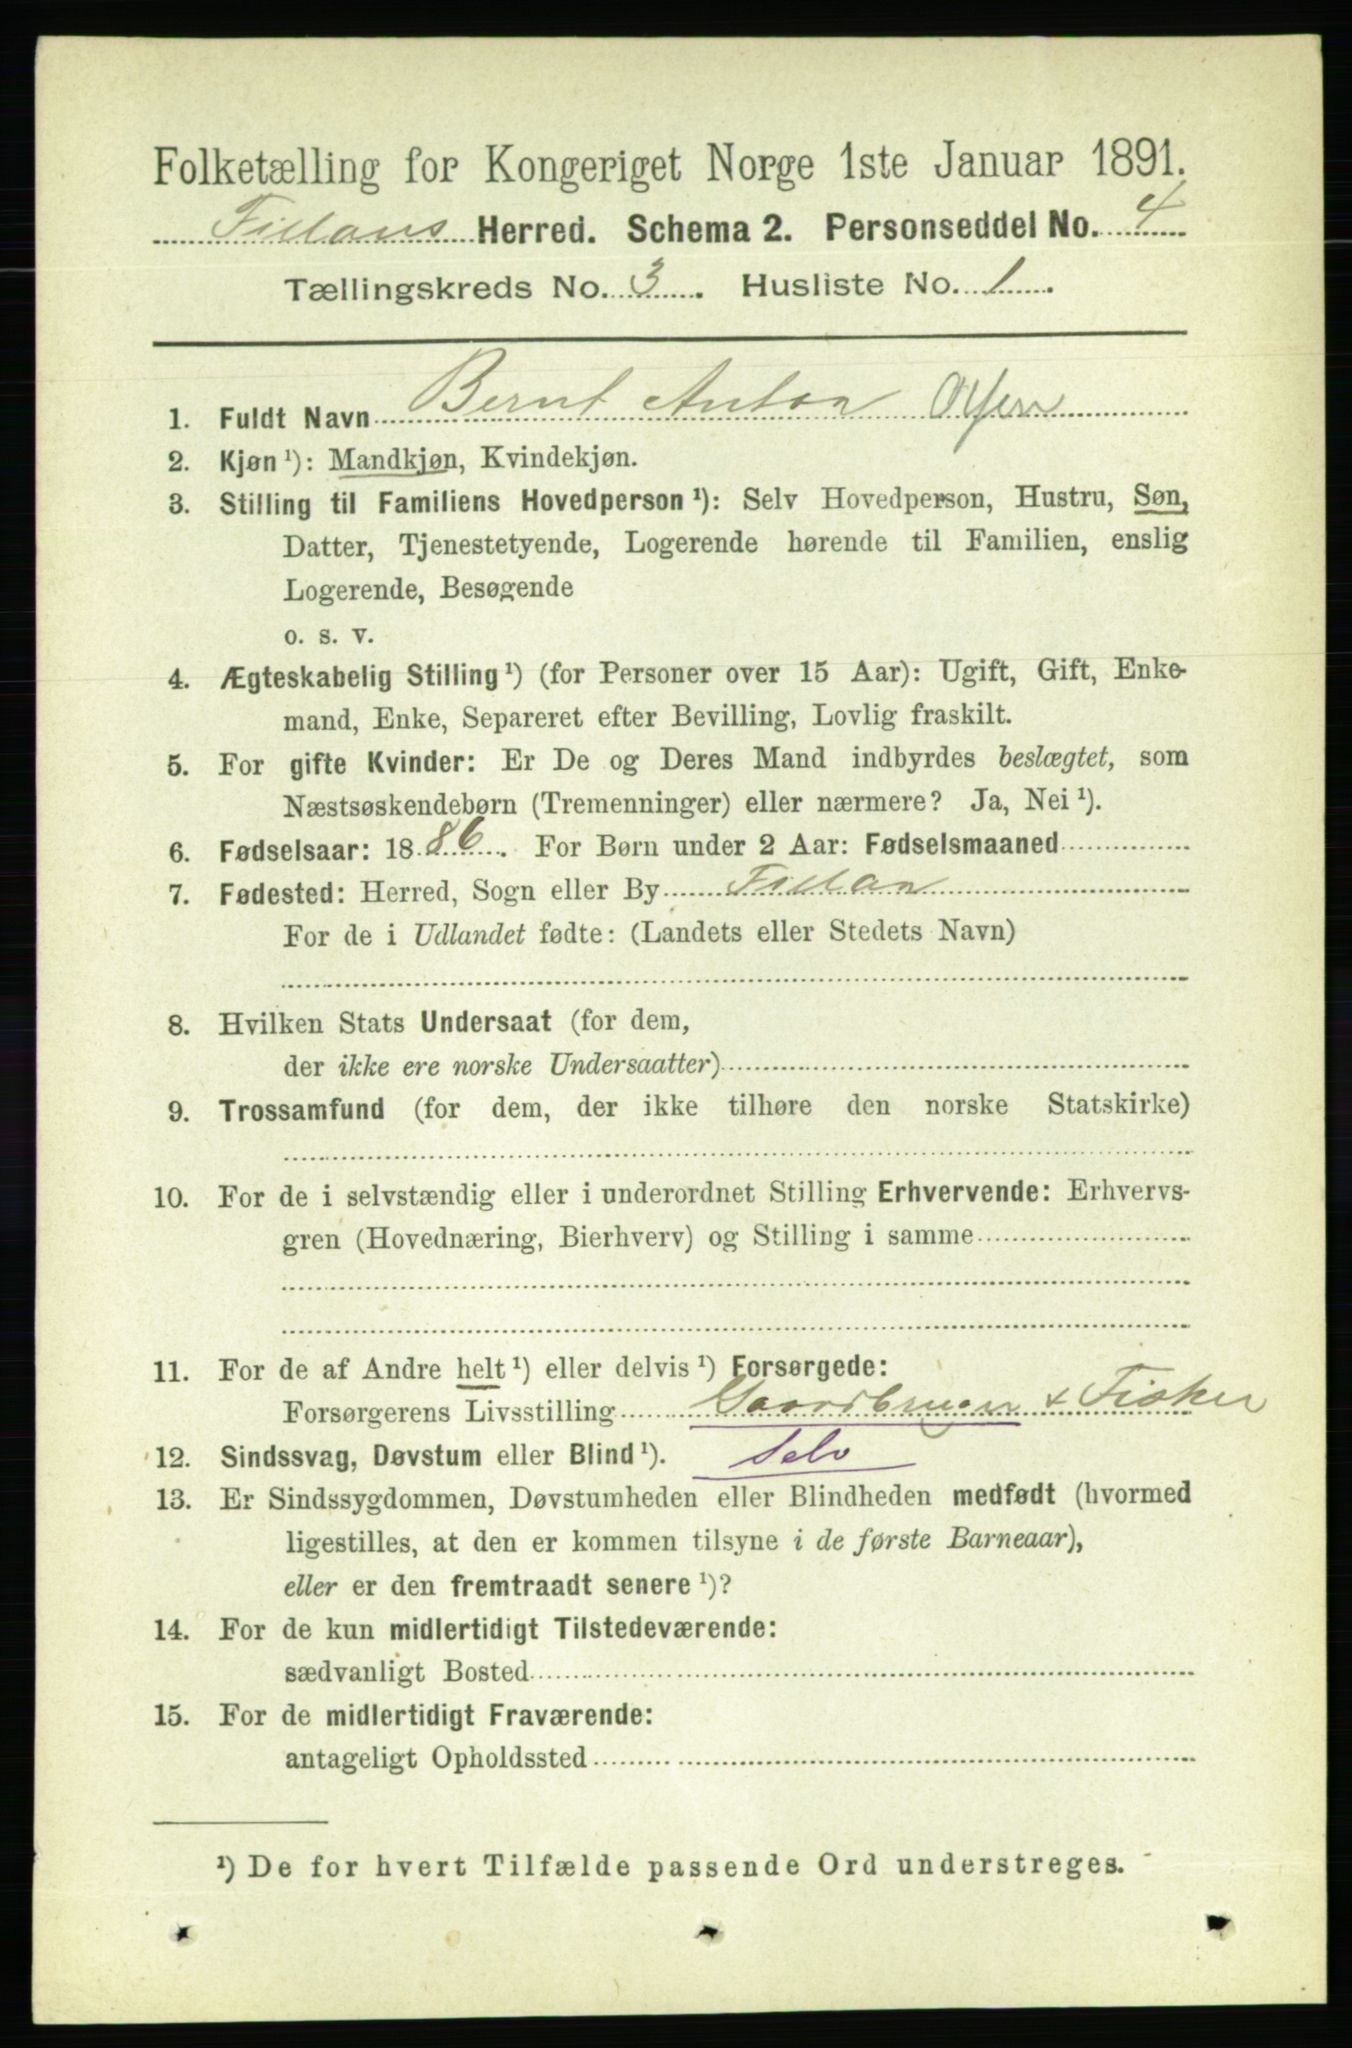 Folketælling for Kongeriget Norge 1ste Januar 1891.
Fillans Herred. Schema 2. Personseddel No. 4
Tællingskreds No. 3. Husliste No. 1.
1. Fuldt Navn Bernt Anton Olsen
2. Kjøn ¹): Mandkjøn, Kvindekjøn.
3. Stilling til Familiens Hovedperson ¹): Selv Hovedperson, Hustru, Søn,
Datter, Tjenestetyende, Logerende hørende til Familien, enslig
Logerende, Besøgende
o. s. v.
4. Ægteskabelig Stilling ¹) (for Personer over 15 Aar): Ugift, Gift, Enke-
mand, Enke, Separeret efter Bevilling, Lovlig fraskilt.
5. For gifte Kvinder: Er De og Deres Mand indbyrdes beslægtet, som
Næstsøskendebørn (Tremenninger) eller nærmere? Ja, Nei ¹).
6. Fødselsaar: 1886. For Børn under 2 Aar: Fødselsmaaned
7. Fødested: Herred, Sogn eller By Fillan
For de i Udlandet fødte: (Landets eller Stedets Navn)
8. Hvilken Stats Undersaat (for dem,
der ikke ere norske Undersaatter)
9. Trossamfund (for dem, der ikke tilhøre den norske Statskirke)
10. For de i selvstændig eller i underordnet Stilling Erhvervende: Erhvervs-
gren (Hovednæring, Bierhverv) og Stilling i samme
11. For de af Andre helt ¹) eller delvis ¹) Forsørgede:
Forsørgerens Livsstilling Gaardbruger & Fisker
12. Sindssvag, Døvstum eller Blind ¹). Selv
13. Er Sindssygdommen, Døvstumheden eller Blindheden medfødt (hvormed
ligestilles, at den er kommen tilsyne i de første Barneaar),
eller er den fremtraadt senere ¹)?
14. For de kun midlertidigt Tilstedeværende:
sædvanligt Bosted
15. For de midlertidigt Fraværende:
antageligt Opholdssted
¹) De for hvert Tilfælde passende Ord understreges.